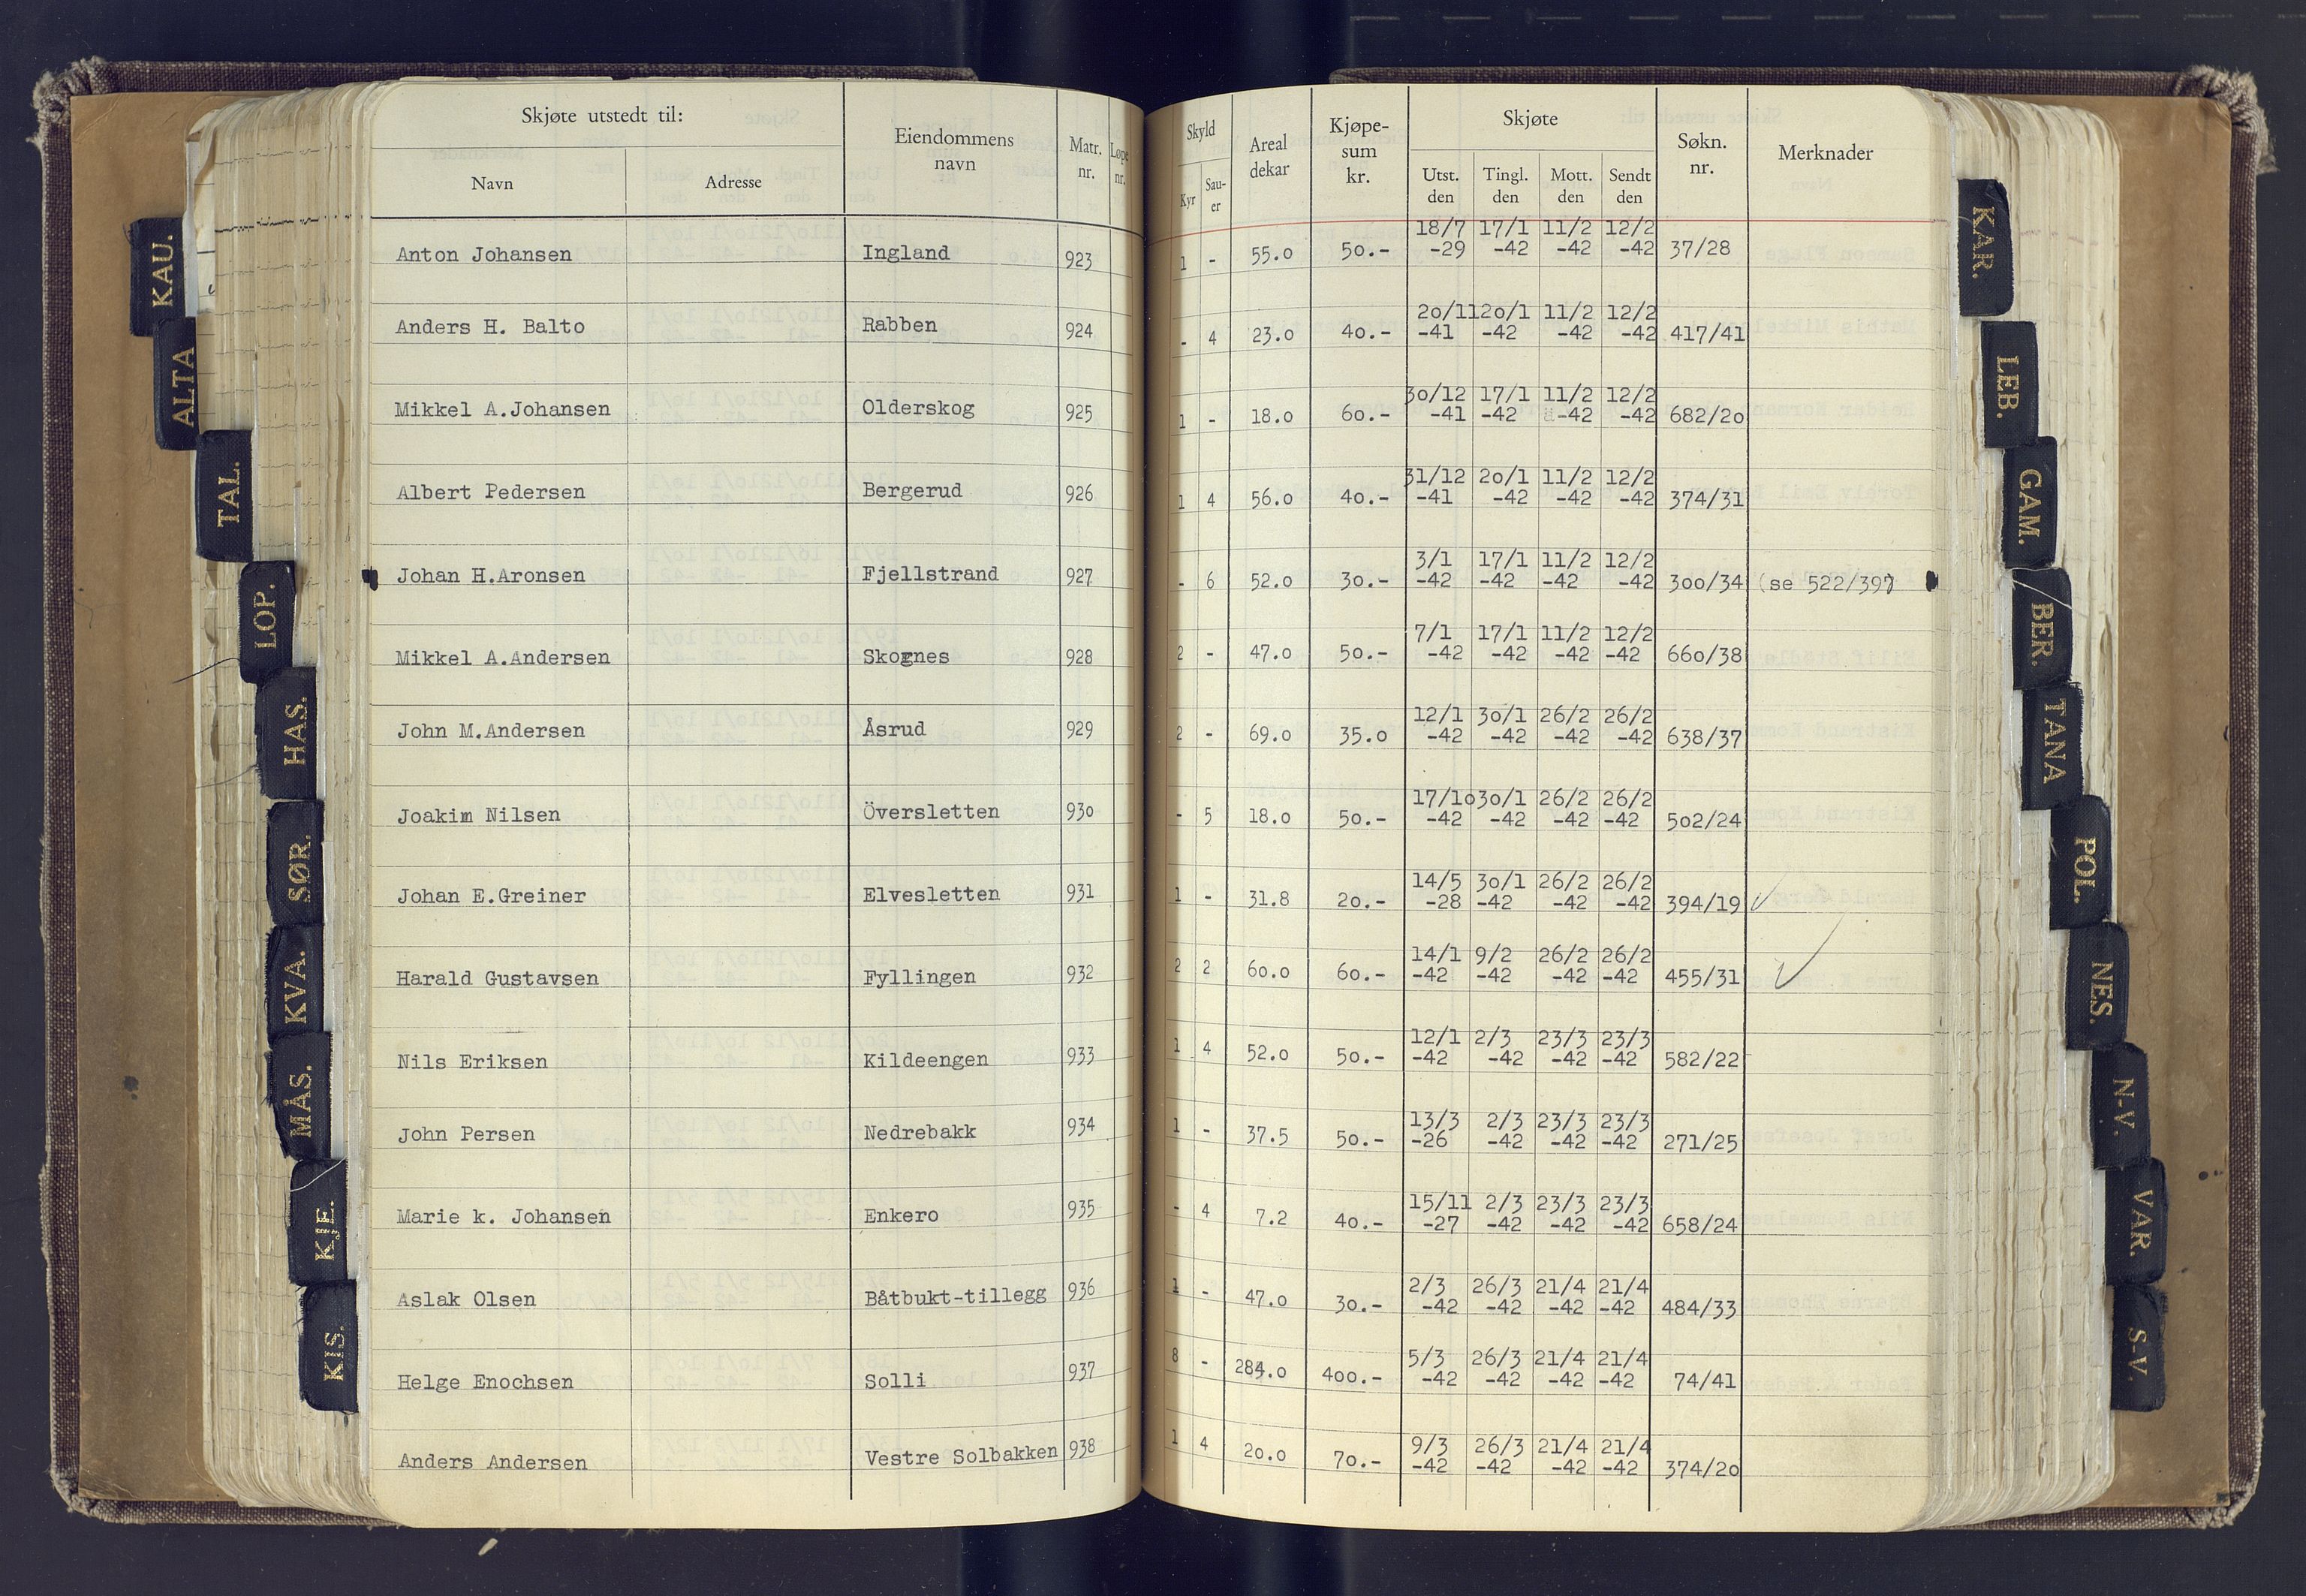 Skjøte utstedt til: Eiendommens navn Matr. nr. Løpe nr. Skyld Areal dekar Kjøpesum kr. Skjøte Søkn. nr. Merknader
Navn Adresse Kyr Sauer Utst. den Tingl. den Mott. den Sendt den
Anton Johansen Ingland 923 1 - 55.0 50.- 18/7 -29 17/1 -42 11/2 -42 12/2 -42 37/28
Anders H. Balto Rabben 924 - 4 23.0 40.- 20/11 -41 20/1 -42 11/2 -42 12/2 -42 417/41
Mikkel A.Johansen Olderskog 925 1 - 18.0 60.- 30/12 -41 17/1 -42 11/2 -42 12/2 -42 682/20
Albert Pedersen Bergerud 926 1 4 56.0 40.- 31/12 -41 20/1 -42 11/2 -42 12/2 -42 374/31
Johan H.Aronsen Fjellstrand 927 - 6 52.0 30.- 3/1 -42 17/1 -42 11/2 -42 12/2 -42 300/34 (se 522/39)
Mikkel A.Andersen Skognes 928 2 - 47.0 50.- 7/1 -42 17/1 -42 11/2 -42 12/2 -42 660/38
John M.Andersen Åsrud 929 2 - 69.0 35.0 12/1 -42 30/1 -42 26/2 -42 26/2 -42 638/37
Joakim Nilsen Översletten 930 - 5 18.0 50.- 17/10 -42 30/1 -42 26/2 -42 26/2 -42 502/24
Johan E.Greiner Elvesletten 931 1 - 31.8 20.- 14/5 -28 30/1 -42 26/2 -42 26/2 -42 394/19
Harald Gustavsen Fyllingen 932 2 2 60.0 60.- 14/1 -42 9/2 -42 26/2 -42 26/2 -42 455/31
Nils Eriksen Kildeengen 933 1 4 52.0 50.- 12/1 -42 2/3 -42 23/3 -42 23/3 -42 582/22
John Persen Nedrebakk 934 1 - 37.5 50.- 13/3 -26 2/3 -42 23/3 -42 23/3 -42 271/25
Marie k. Johansen Enkero 935 - 4 7.2 40.- 15/11 -27 2/3 -42 23/3 -42 23/3 -42 658/24
Aslak Olsen Båtbukt-tillegg 936 1 - 47.0 30.- 2/3 -42 26/3 -42 21/4 -42 21/4 -42 484/33
Helge Enochsen Solli 937 8 - 284.0 400.- 5/3 -42 26/3 -42 21/4 -42 21/4 -42 74/41
Anders Andersen Vestre Solbakken 938 1 4 20.0 70.- 9/3 -42 26/3 -42 21/4 -42 21/4 -42 374/20
KAU.
ALTA
TAL.
LOP.
HAS.
SØR.
KVA.
MÅS.
KJE.
KIS.
KAR.
LEB.
GAM.
BER.
TANA
POL.
NES.
N-V.
VAR.
S-V.